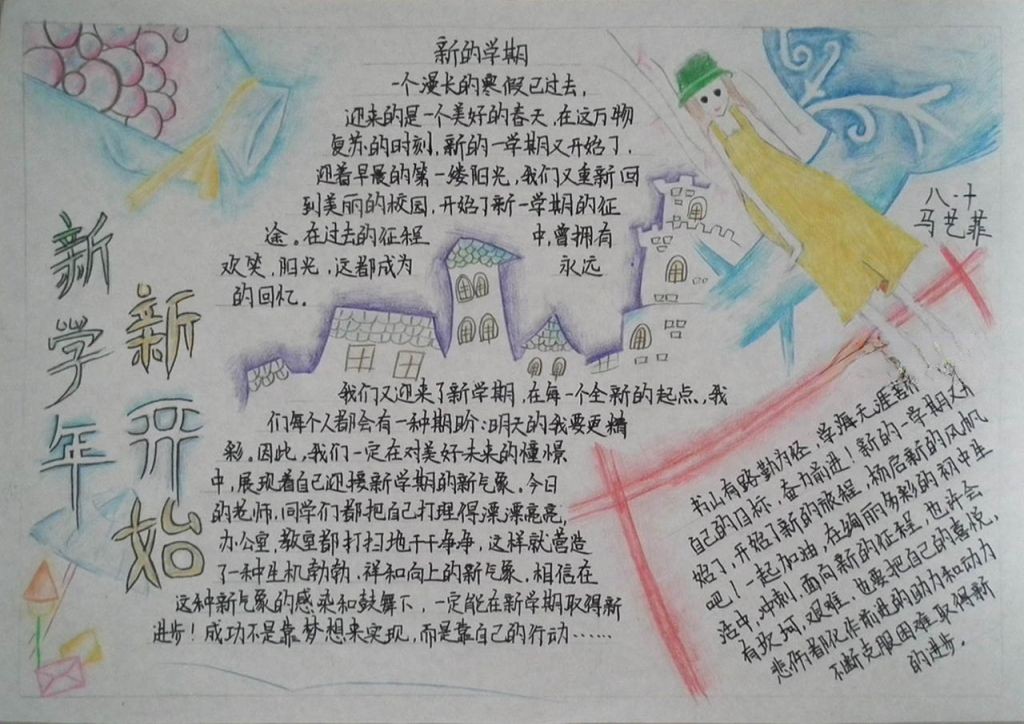 新的学期
一个漫长的寒假已过去，
迎来的是一个美好的春天，在这万物
复苏的时刻，新的一学期又开始了，
迎着早晨的第一缕阳光，我们又重新回
到美丽的校园，开始了新一学期的征
途。在过去的征程中，曾拥有
欢笑，阳光，这都成为永远
的回忆。
八.十
马艺菲
新学年
新开始
我们又迎来了新学期，在每一个全新的起点，我
们每个人都会有一种期盼：明天的我要更精
彩。因此，我们一定在对美好未来的憧憬
中，展现着自己迎接新学期的新气象。今日
的老师，同学们都把自己打理得漂漂亮亮，
办公室，教室都打扫地干干净净，这样就营造
了一种生机勃勃，祥和向上的新气象。相信在
这种新气象的感染和鼓舞下，一定能在新学期取得新
进步！成功不是靠梦想来实现，而是靠自己的行动……
书山有路勤为径，学海无涯
自己的目标，奋力前进！新的一学期又开
始了，开始了新的旅程，杨启新的风帆
吧！一起加油，在绚丽多彩的初中生
活中，冲刺，面向新的征程，也许会
有坎坷，艰难，也要把自己的喜悦，
悲伤都化作前进的助力和动力
不断克服困难取得新
的进步。